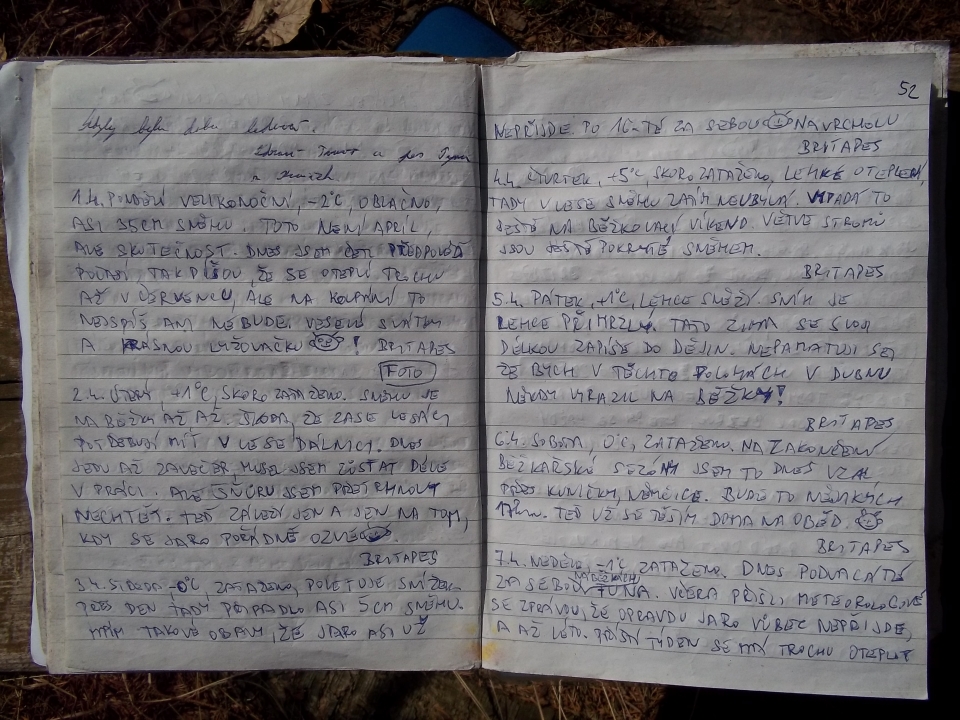 kdyby bylo dobré lyžování.
Zdraví Tomot a pes Tyma
1.4. PONDĚLÍ VELIKONOČNÍ, -2°C, OBLAČNO,
ASI 35cm SNĚHU. TOTO NENÍ APRÍL,
ALE SKUTEČNOST. DNES JSEM ČETL PŘEDPOVĚĎ
POČASÍ, TAK PÍŠOU, ŽE SE OTEPLÍ TROCHU
AŽ V ČERVENCU, ALE NA KOUPÁNÍ TO
NEJSPÍŠ ANI NEBUDE. VESELÉ SVÁTKY
A KRÁSNOU LYŽOVAČKU ! BRITAPES
FOTO
2.4. ÚTERÝ, +1°C, SKORO ZATAŽENO. SNĚHU JE
NA BĚŽKY AŽ AŽ. ŠKODA, ŽE ZASE LESÁCI
POTŘEBUJÍ MÍT V LESE DÁLNICI. DNES
JEDU AŽ ZAVEČER, MUSEL JSEM ZŮSTAT DÉLE
V PRÁCI. ALE ŠŇŮRU JSEM PŘETRHNOUT
NECHTĚL. TEĎ ZÁLEŽÍ JEN A JEN NA TOM,
KDY SE JARO POŘÁDNĚ OZVE
BRITAPES
3.4. STŘEDA -0°C, ZATAŽENO, POLETUJE SNÍŽEK.
PŘES DEN TADY PŘIPADLO ASI 5cm SNĚHU.
MÁM TAKOVÉ OBAVY, ŽE JARO ASI UŽ
52
NEPŘIJDE. PO 16-TÉ ZA SEBOU NA VRCHOLU
BRITAPES
4.4. ČTVRTEK, +5°C, SKORO ZATAŽENO, LEHKÉ OTEPLENÍ,
TADY V LESE SNĚHU ZATÍM NEUBÝVÁ. VYPADÁ TO
JEŠTĚ NA BĚŽKOVACÍ VÍKEND. VĚTVE STROMŮ
JSOU JEŠTĚ POKRYTÉ SNĚHEM.
BRITAPES
5.4. PÁTEK, +1°C, LEHCE SNĚŽÍ. SNÍH JE
LEHCE PŘIMRZLÝ. TATO ZIMA SE SVOJÍ
DÉLKOU ZAPÍŠE DO DĚJIN. NEPAMATUJI SE,
ŽE BYCH V TĚCHTO POLOHÁCH V DUBNU
NĚKDY VYRAZIL NA BĚŽKY!
BRITAPES
6.4. SOBOTA, 0°C, ZATAŽENO. NA ZAKONČENÍ
BĚŽKAŘSKÉ SEZÓNY JSEM TO DNES VZAL
PŘES KUNIČKY, NĚMČICE. BUDE TO NĚJAKÝCH
17km. TEĎ UŽ SE TĚŠÍM DOMA NA OBĚD.
BRITAPES
7.4. NEDĚLE, -1°C, ZATAŽENO. DNES PODVACÁTÉ
ZA SEBOU NA BĚŽKÁCH TUNA. VČERA PŘIŠLI METEOROLOGOVÉ
SE ZPRÁVOU, ŽE OPRAVDU JARO VŮBEC NEPŘIJDE,
A AŽ LÉTO. PŘÍŠTÍ TÝDEN SE MÁ TROCHU OTEPLIT